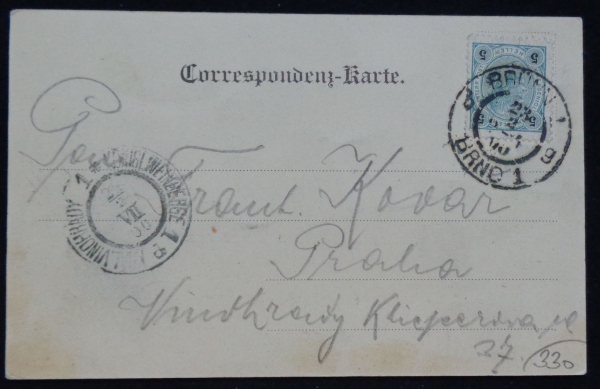 5 HELLER 5
Correspondenz-Karte.
BRÜNN 1
BRNO 1
9
KÖNIGL. WEINBERGE 1
VII
Pan
Frant. Kovar
Praha
Vinohrady Klicperova ul
27. 330